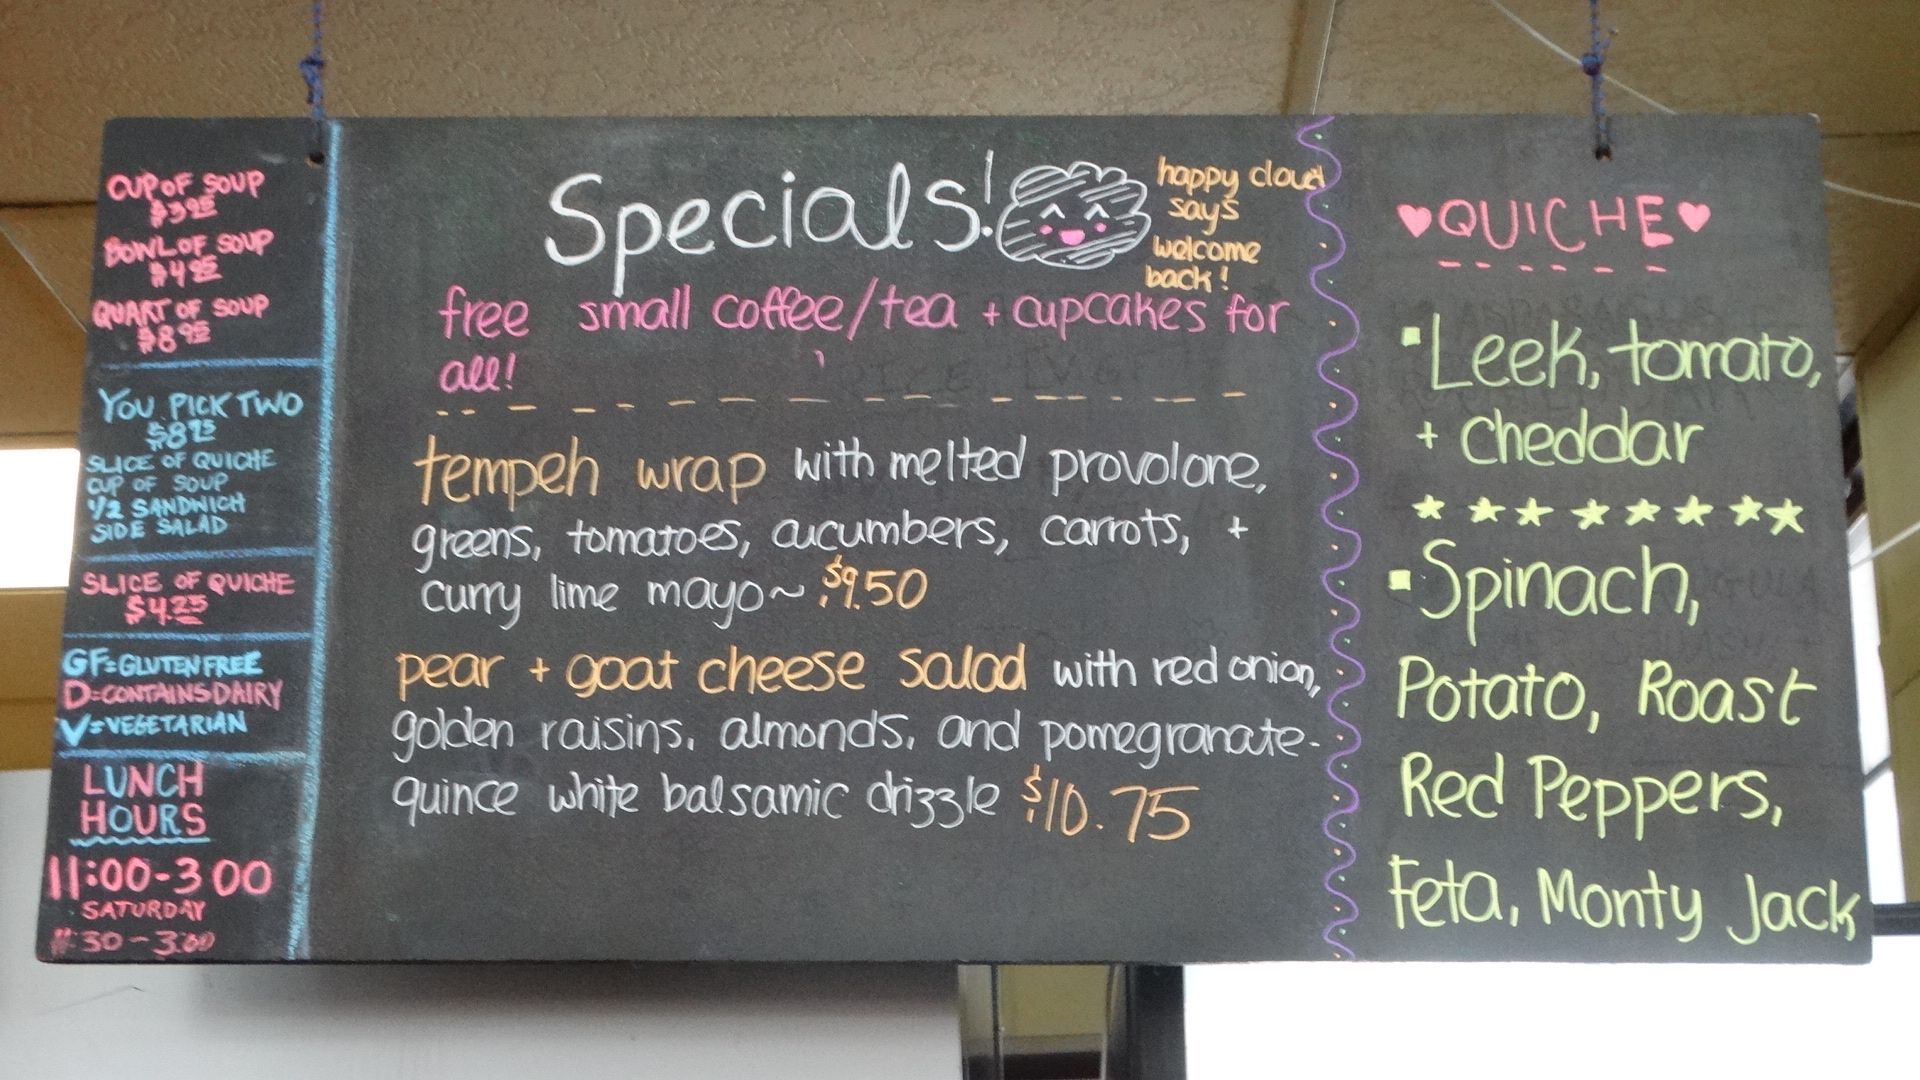 CUP OF SOUP
$3.95
BOWL OF SOUP
$4.95
QUART OF SOUP
$8.95
YOU PICK TWO
$8.95
SLICE OF QUICHE
CUP OF SOUP
1/2 SANDWICH
SIDE SALAD
SLICE OF QUICHE
$4.25
GF=GLUTEN FREE
D=CONTAINS DAIRY
V=VEGETARIAN
LUNCH
HOURS
11:00-3:00
SATURDAY
11:30-3:00
Specials!
happy cloud
says
welcome
back!
free small coffee/tea + cupcakes for
all!
tempeh wrap with melted provolone,
greens, tomatoes, cucumbers, carrots, +
curry lime mayo~ $9.50
pear + goat cheese salad with red onion,
golden raisins, almonds, and pomegranate-
quince white balsamic drizzle $10.75
QUICHE
Leek, tomato,
+ cheddar
Spinach,
Potato, Roast
Red Peppers,
Feta, Monty Jack